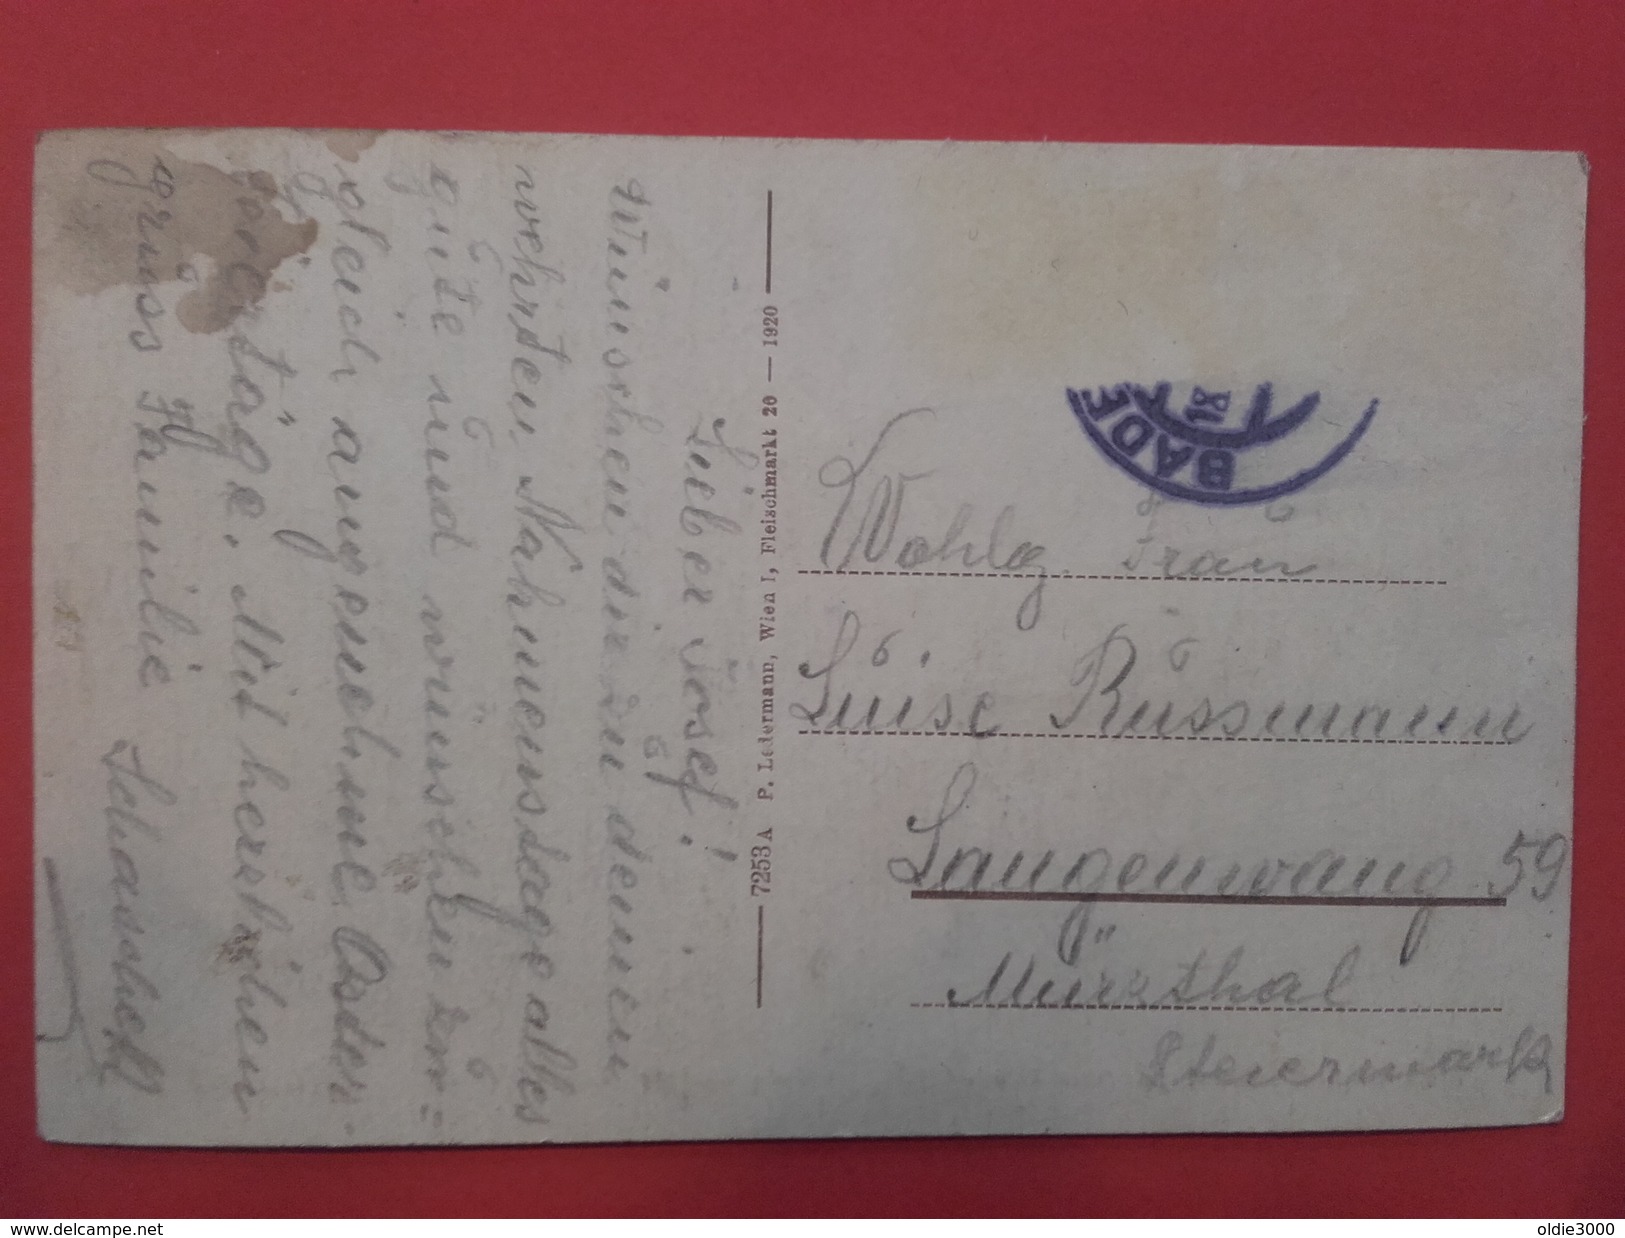 Lieber Josef!
Wünschen dir zu deinem
wehrten Nahmenstage alles
gute und wünschen zu=
gleich angenehme Oster-
feiertäge. Mit herzlichen
gruss Familie
7253 A P. Ledermann, Wien I, Fleischmarkt 20 — 1920
BADE
18
Wohlg. Frau
Luise Russmann
Langenwang 59
Mürzthal
Steiermark
www.delcampe.net
oldie3000